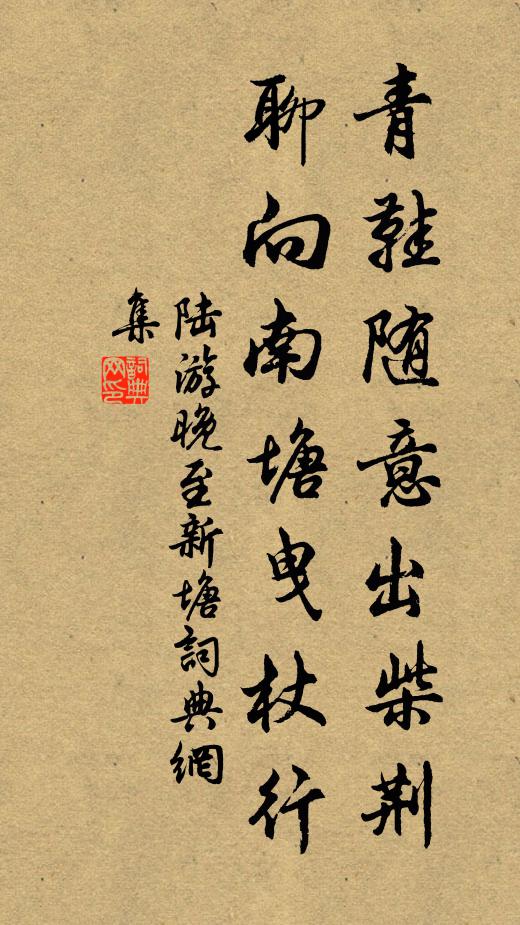 青鞋随意出柴荆
聊向南塘曳杖行
陆游晚至新塘詞典網
集
詞典网印